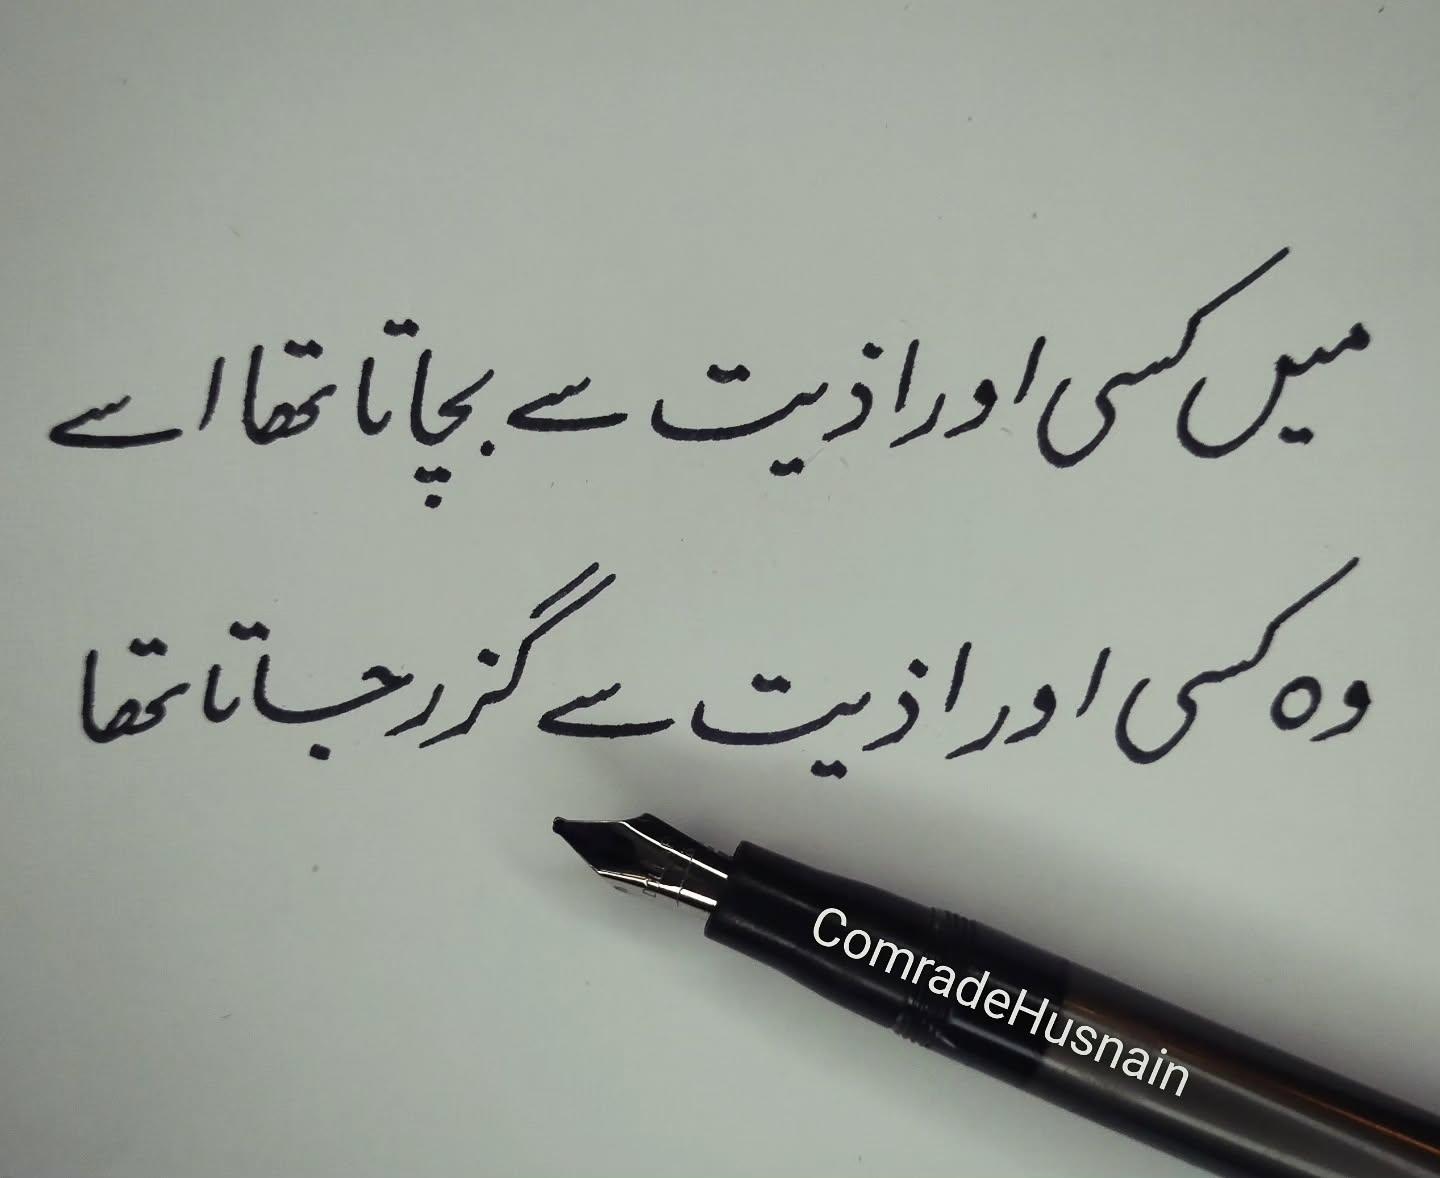 میں کسی اور اذیت سے بچاتا تھا اسے
وہ کسی اور اذیت سے گزر جاتا تھا
ComradeHusnain